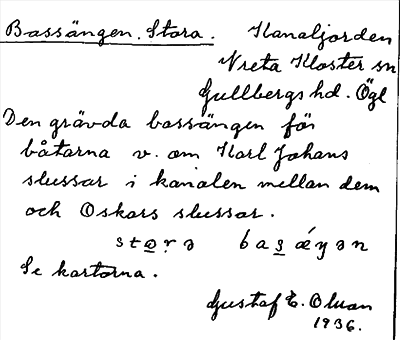 Bassängen, Stora. Kanaljorden
Vreta Kloster sn
Gullbergs hd. Ögl
Den grävda bassängen för
båtarna v. om Karl Johans
slussar i kanalen mellan dem
och Oskars slussar.
stọrə basǽŋən
Se kartorna.
Gustaf E. Olsson
1936.